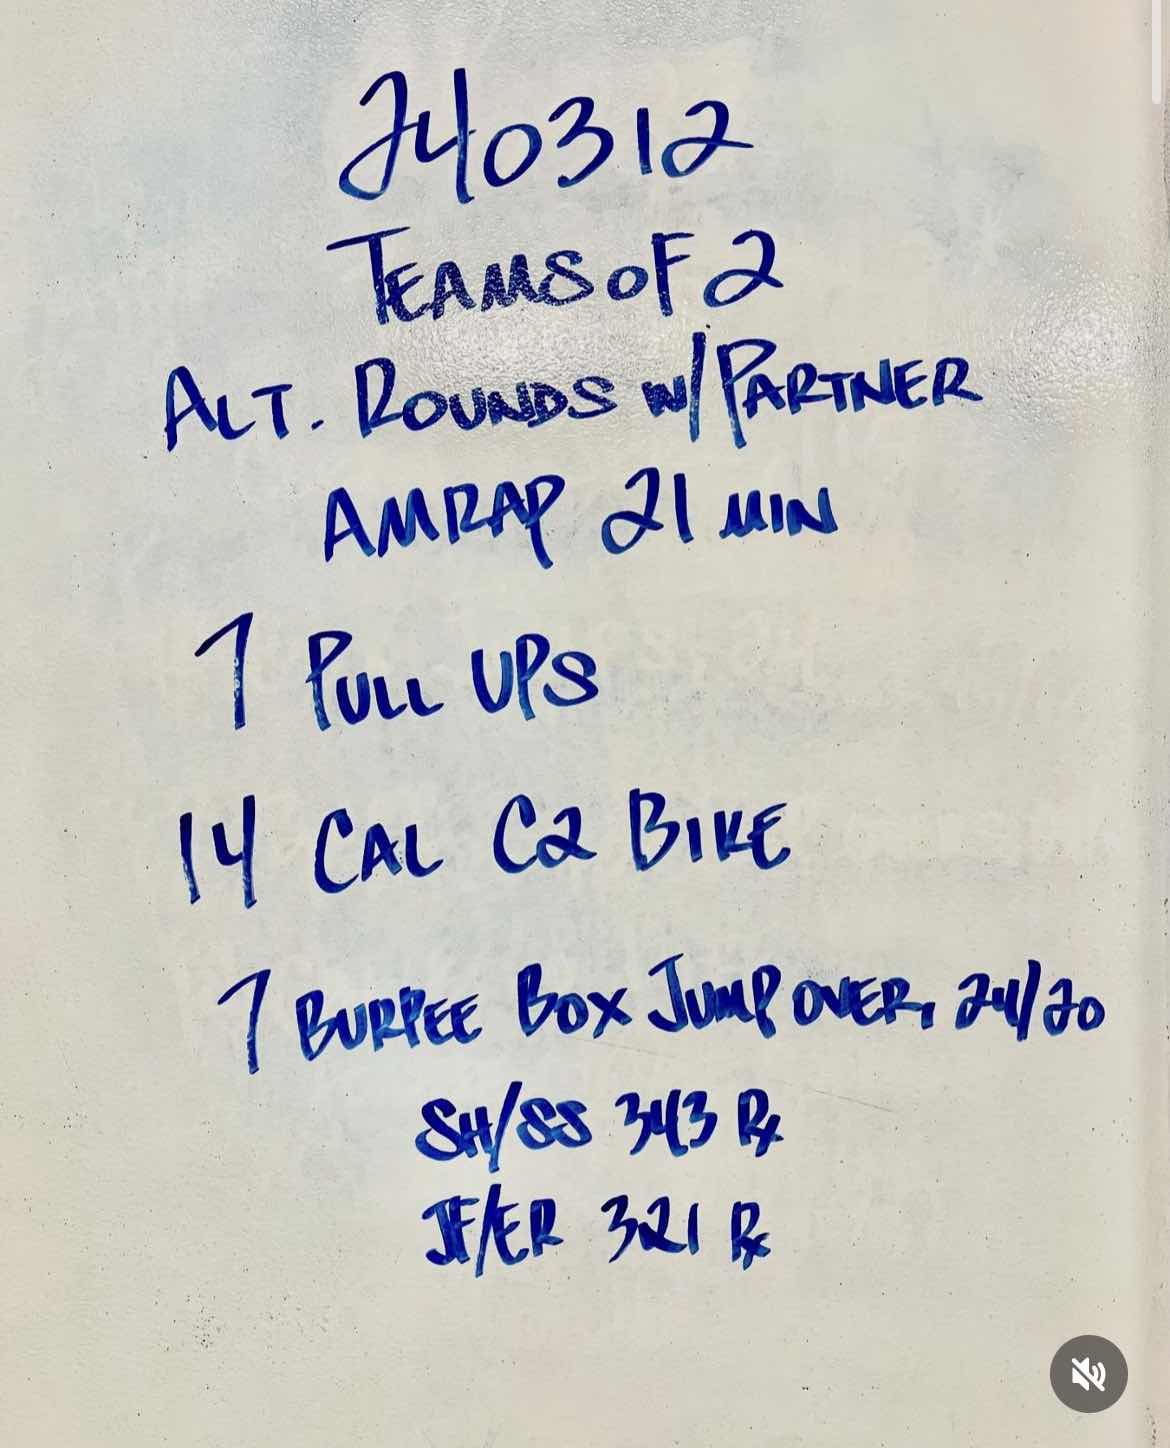 240312
TEAMS OF 2
ALT. ROUNDS W/ PARTNER
AMRAP 21 MIN
7 PULL UPS
14 CAL C2 BIKE
7 BURPEE BOX JUMP OVER, 24/20
SH/SS 343 Rx
JF/ER 321 Rx